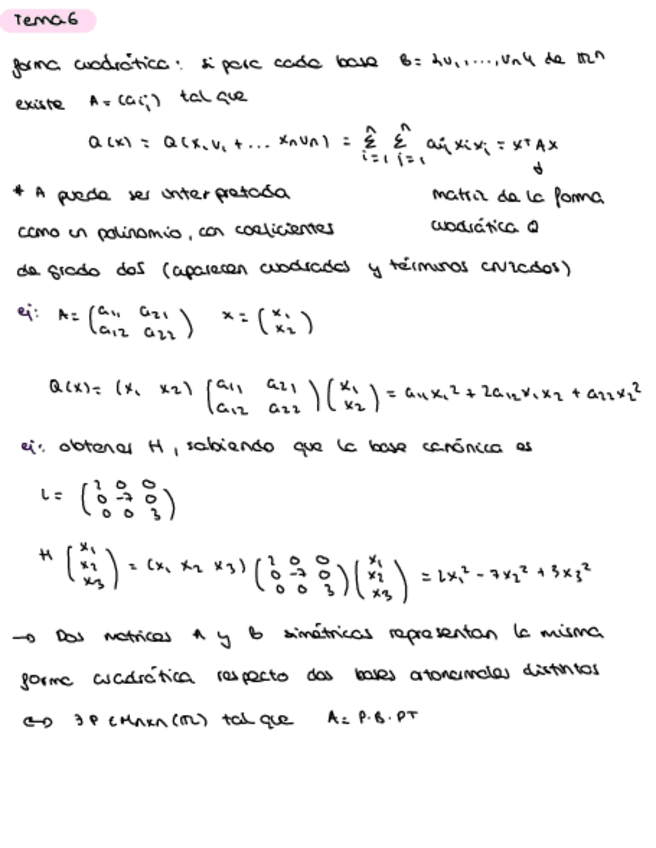 Tema 6
forma cuadrática: si para cada base B = {v₁, ..., vₙ} de ℝⁿ
existe A = (aij) tal que
Q(x) = Q(x₁v₁ + ... xₙvₙ) = Σⁿᵢ₌₁ Σⁿⱼ₌₁ aij xi xj = xᵀAx
↓
* A puede ser interpretada matriz de la forma
como un polinomio, con coeficientes cuadrática Q
de grado dos (aparecen cuadrados y términos cruzados)
ej: A = (a₁₁ a₂₁ / a₁₂ a₂₂) x = (x₁ / x₂)
Q(x) = (x₁ x₂) (a₁₁ a₂₁ / a₁₂ a₂₂) (x₁ / x₂) = a₁₁x₁² + 2a₁₂x₁x₂ + a₂₂x₂²
ej: obtener H, sabiendo que la base canónica es
L = (2 0 0 / 0 -7 0 / 0 0 3)
H (x₁ / x₂ / x₃) = (x₁ x₂ x₃) (2 0 0 / 0 -7 0 / 0 0 3) (x₁ / x₂ / x₃) = 2x₁² - 7x₂² + 3x₃²
→ Dos matrices A y B simétricas representan la misma
forma cuadrática respecto dos bases ortonormales distintos
⟺ ∃ P ∈ Mₙₓₙ(ℝ) tal que A = P·B·PT